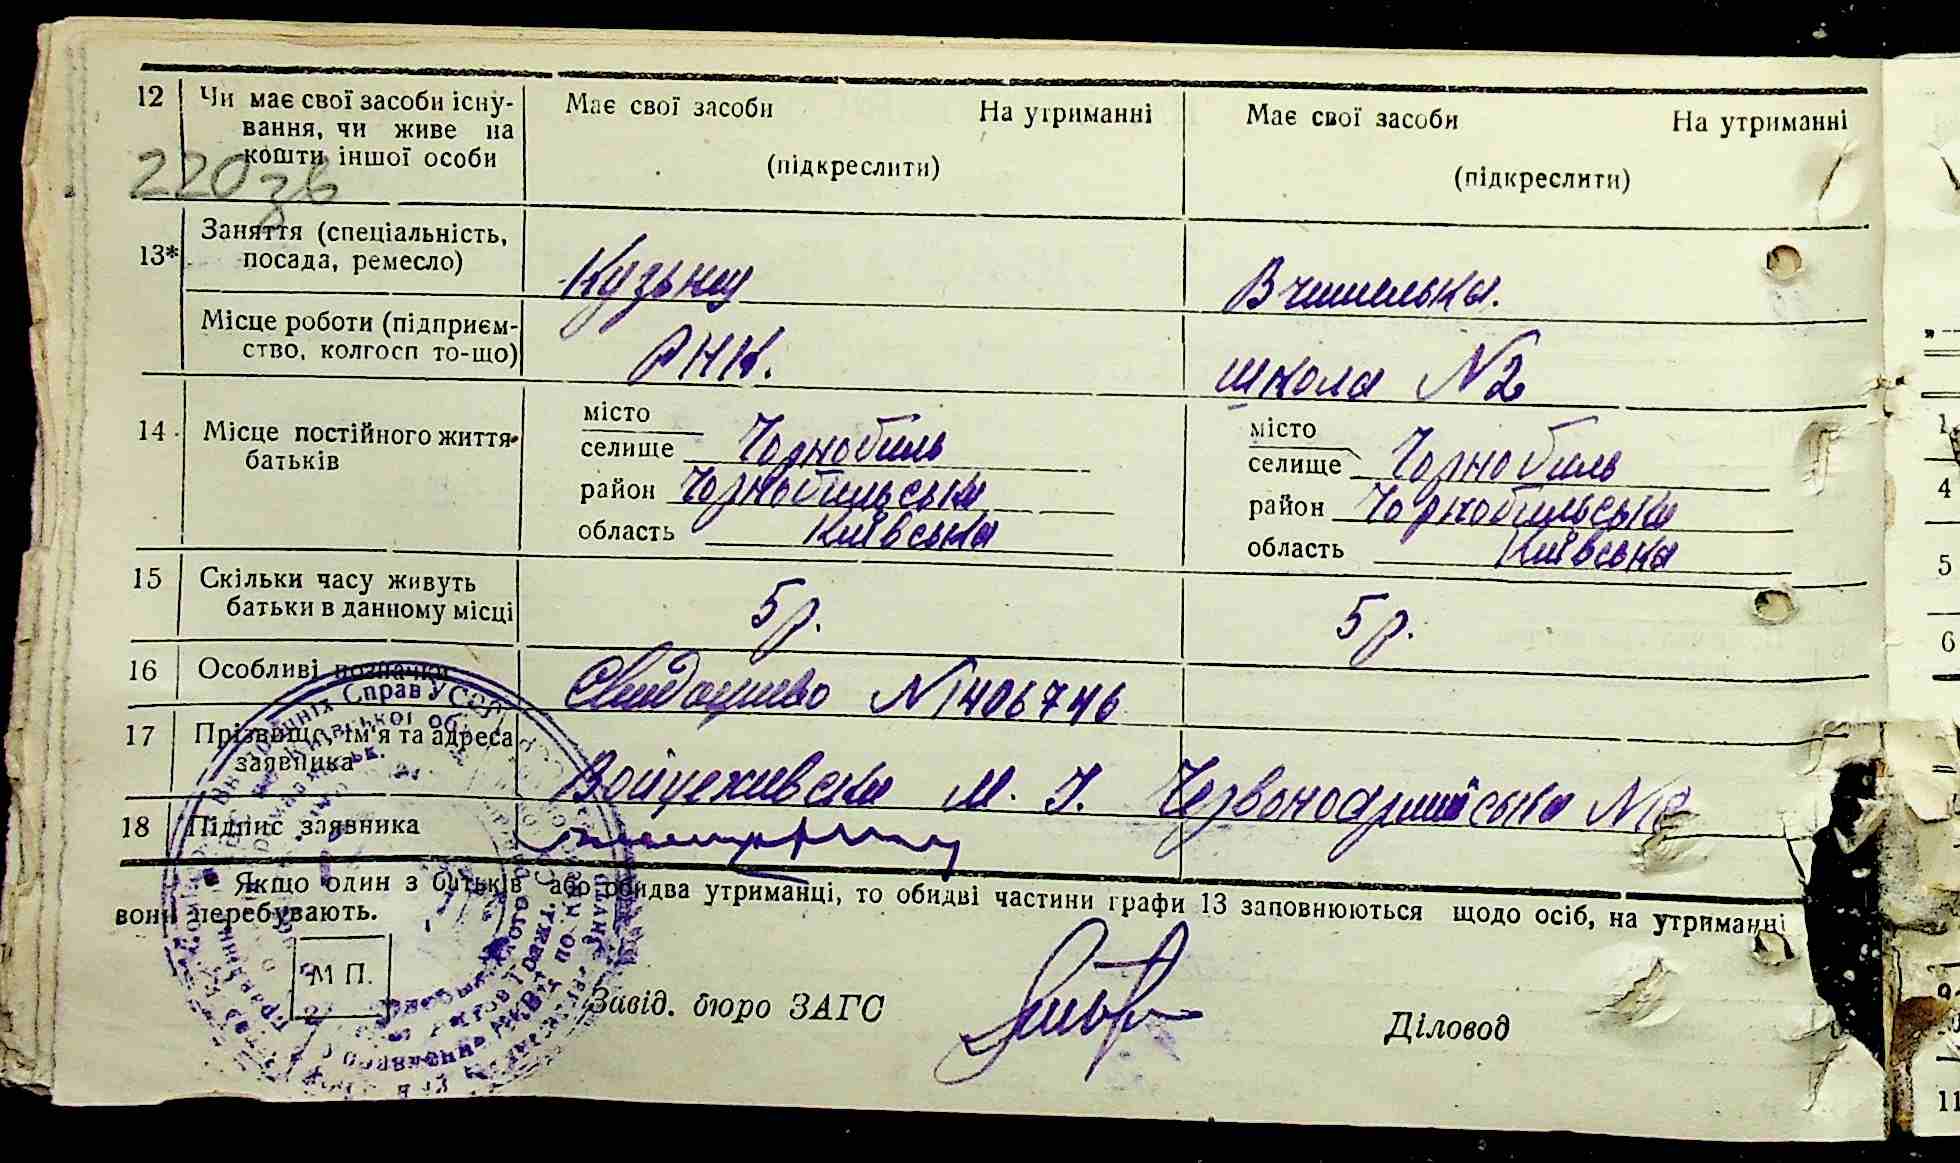 12 Чи має свої засоби існу- Має свої засоби На утриманні Має свої засоби На утриманні
вання, чи живе на
кошти іншої особи (підкреслити) (підкреслити)
220зв
13* Заняття (спеціальність,
посада, ремесло) Кузнец Вчителька.
Місце роботи (підприєм-
ство, колгосп то-що) РНК. школа №2
14 Місце постійного життя
батьків
місто місто
селище Чорнобиль селище Чорнобиль
район Чорнобильська район Чорнобильська
область Київська область Київська
15 Скільки часу живуть
батьки в данному місці 5 р. 5 р.
16 Особливі позначки № 1406746
17 Прізвище, ім'я та адреса
заявника М. Й. Червоноармійська №
18 Підпис заявника
* Якщо один з батьків або обидва утриманці, то обидві частини графи 13 заповнюються щодо осіб, на утриманні
вони перебувають.
М П.
Завід. бюро ЗАГС Діловод
1
4
5
6
11